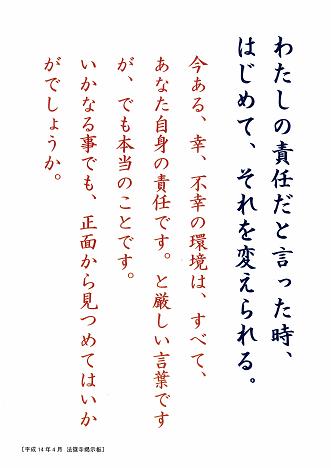 わたしの責任だと言った時、
はじめて、それを変えられる。
今ある、幸、不幸の環境は、すべて、
あなた自身の責任です。と厳しい言葉です
が、でも本当のことです。
いかなる事でも、正面から見つめてはいか
がでしょうか。
［平成14年4月 法嶽寺掲示板］